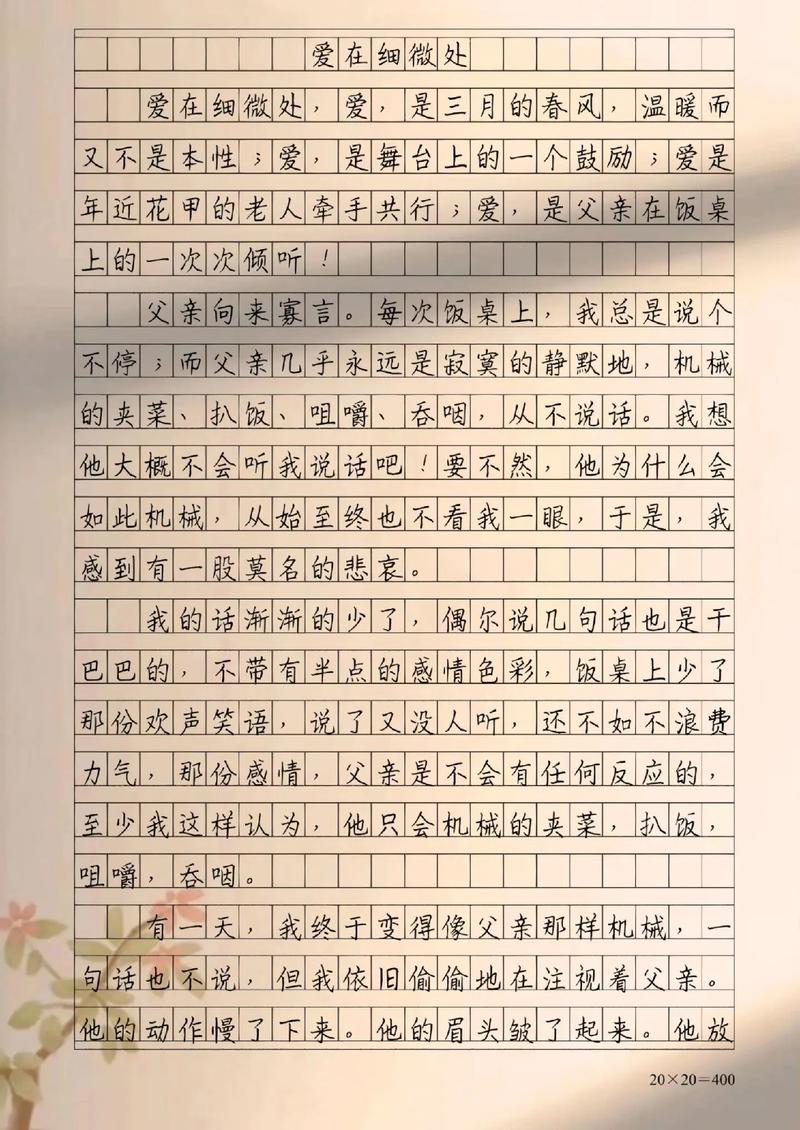 爱在细微处
爱在细微处，爱，是三月的春风，温暖而
又不是本性；爱，是舞台上的一个鼓励；爱是
年近花甲的老人牵手共行；爱，是父亲在饭桌
上的一次次倾听！
父亲向来寡言。每次饭桌上，我总是说个
不停；而父亲几乎永远是寂寞的静默地，机械
的夹菜、扒饭、咀嚼、吞咽，从不说话。我想
他大概不会听我说话吧！要不然，他为什么会
如此机械，从始至终也不看我一眼，于是，我
感到有一股莫名的悲哀。
我的话渐渐的少了，偶尔说几句话也是干
巴巴的，不带有半点的感情色彩，饭桌上少了
那份欢声笑语，说了又没人听，还不如不浪费
力气，那份感情，父亲是不会有任何反应的，
至少我这样认为，他只会机械的夹菜，扒饭，
咀嚼，吞咽。
有一天，我终于变得像父亲那样机械，一
句话也不说，但我依旧偷偷地在注视着父亲。
他的动作慢了下来。他的眉头皱了起来。他放
20×20=400